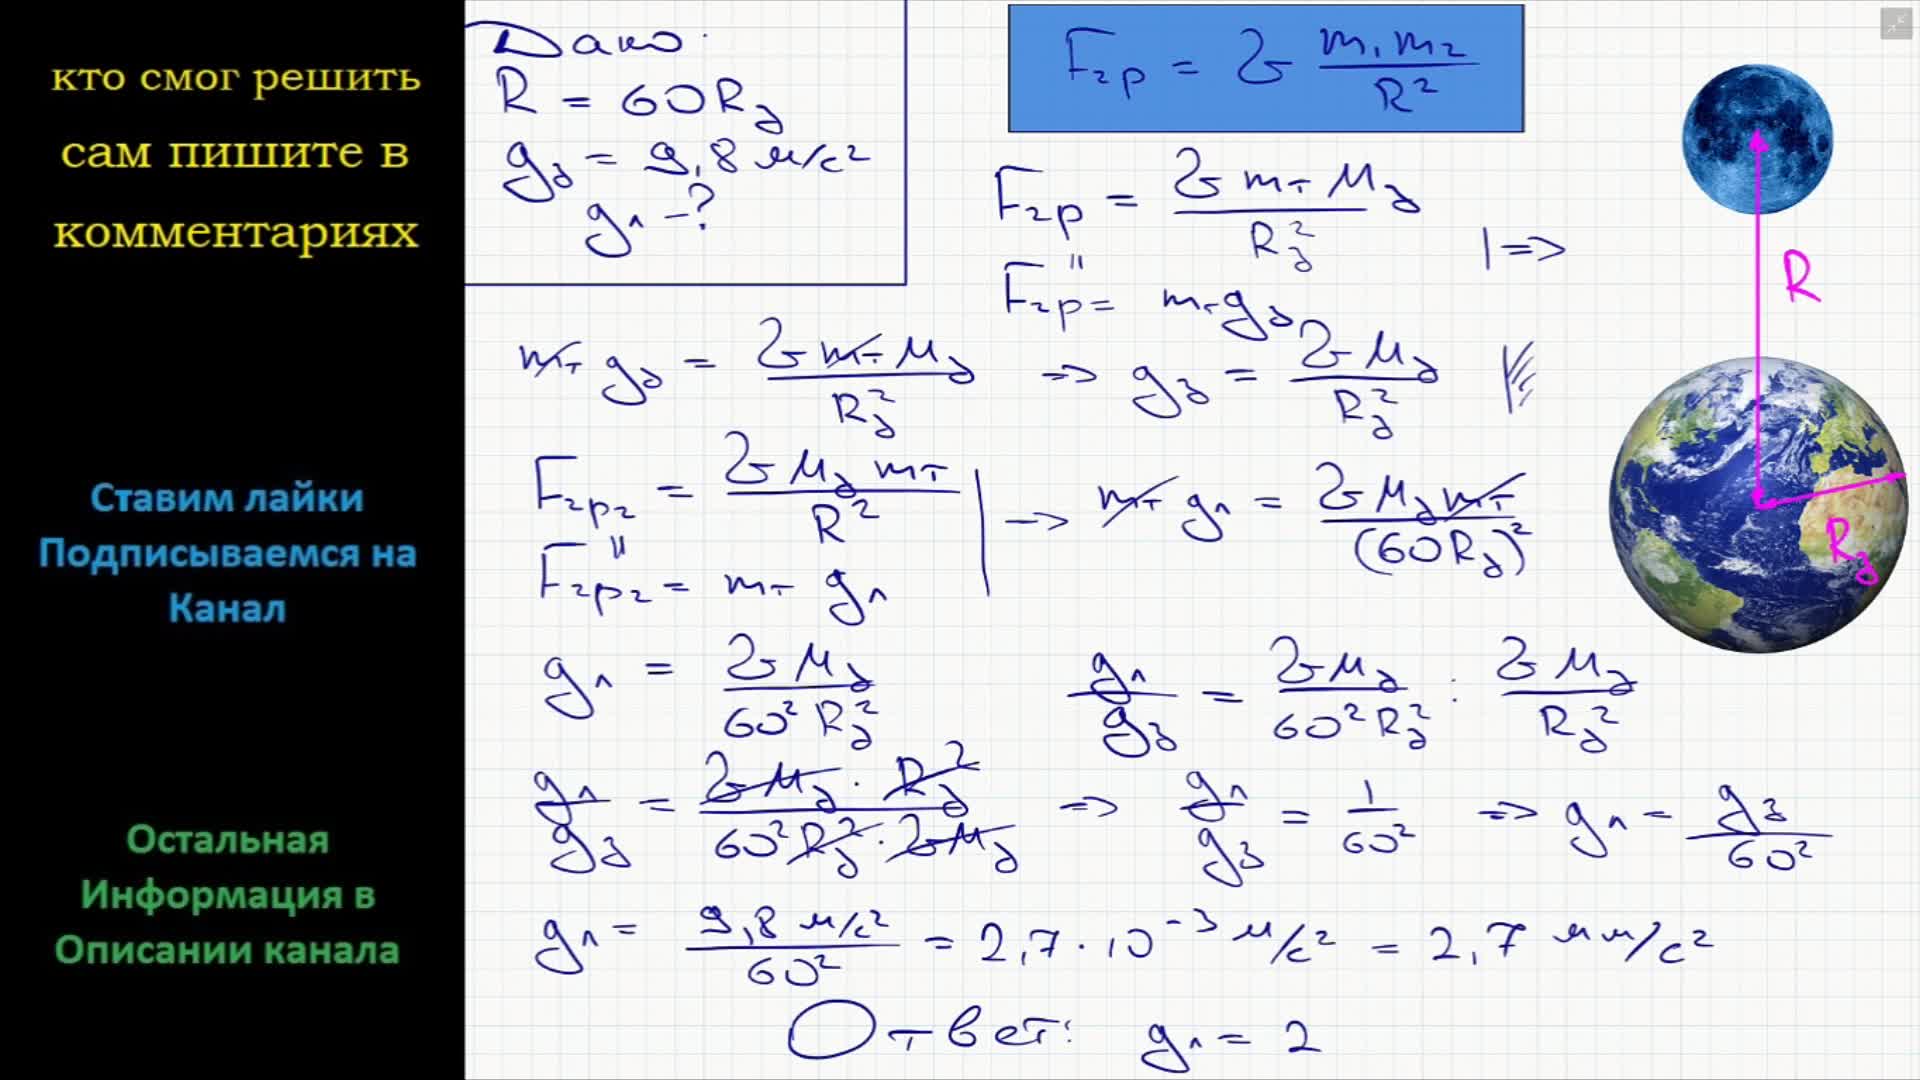 кто смог решить
сам пишите в
комментариях
Ставим лайки
Подписываемся на
Канал
Остальная
Информация в
Описании канала
Дано:
R = 60R₃
g₃ = 9,8 м/с²
gл - ?
Fгр = G m₁m₂ / R²
Fгр = G mт M₃ / R₃²
|=>
Fгр = mт g₃
mт g₃ = G mт M₃ / R₃² => g₃ = G M₃ / R₃²
Fгр₂ = G M₃ mт / R²
Fгр₂ = mт gл
-> mт gл = G M₃ mт / (60R₃)²
gл = G M₃ / 60² R₃²
gл / g₃ = G M₃ / 60² R₃² : G M₃ / R₃²
gл / g₃ = G M₃ · R₃² / 60² R₃² · G M₃ => gл / g₃ = 1 / 60² => gл = g₃ / 60²
gл = 9,8 м/с² / 60² = 2,7 · 10⁻³ м/с² = 2,7 мм/с²
Ответ: gл = 2
R
R₃